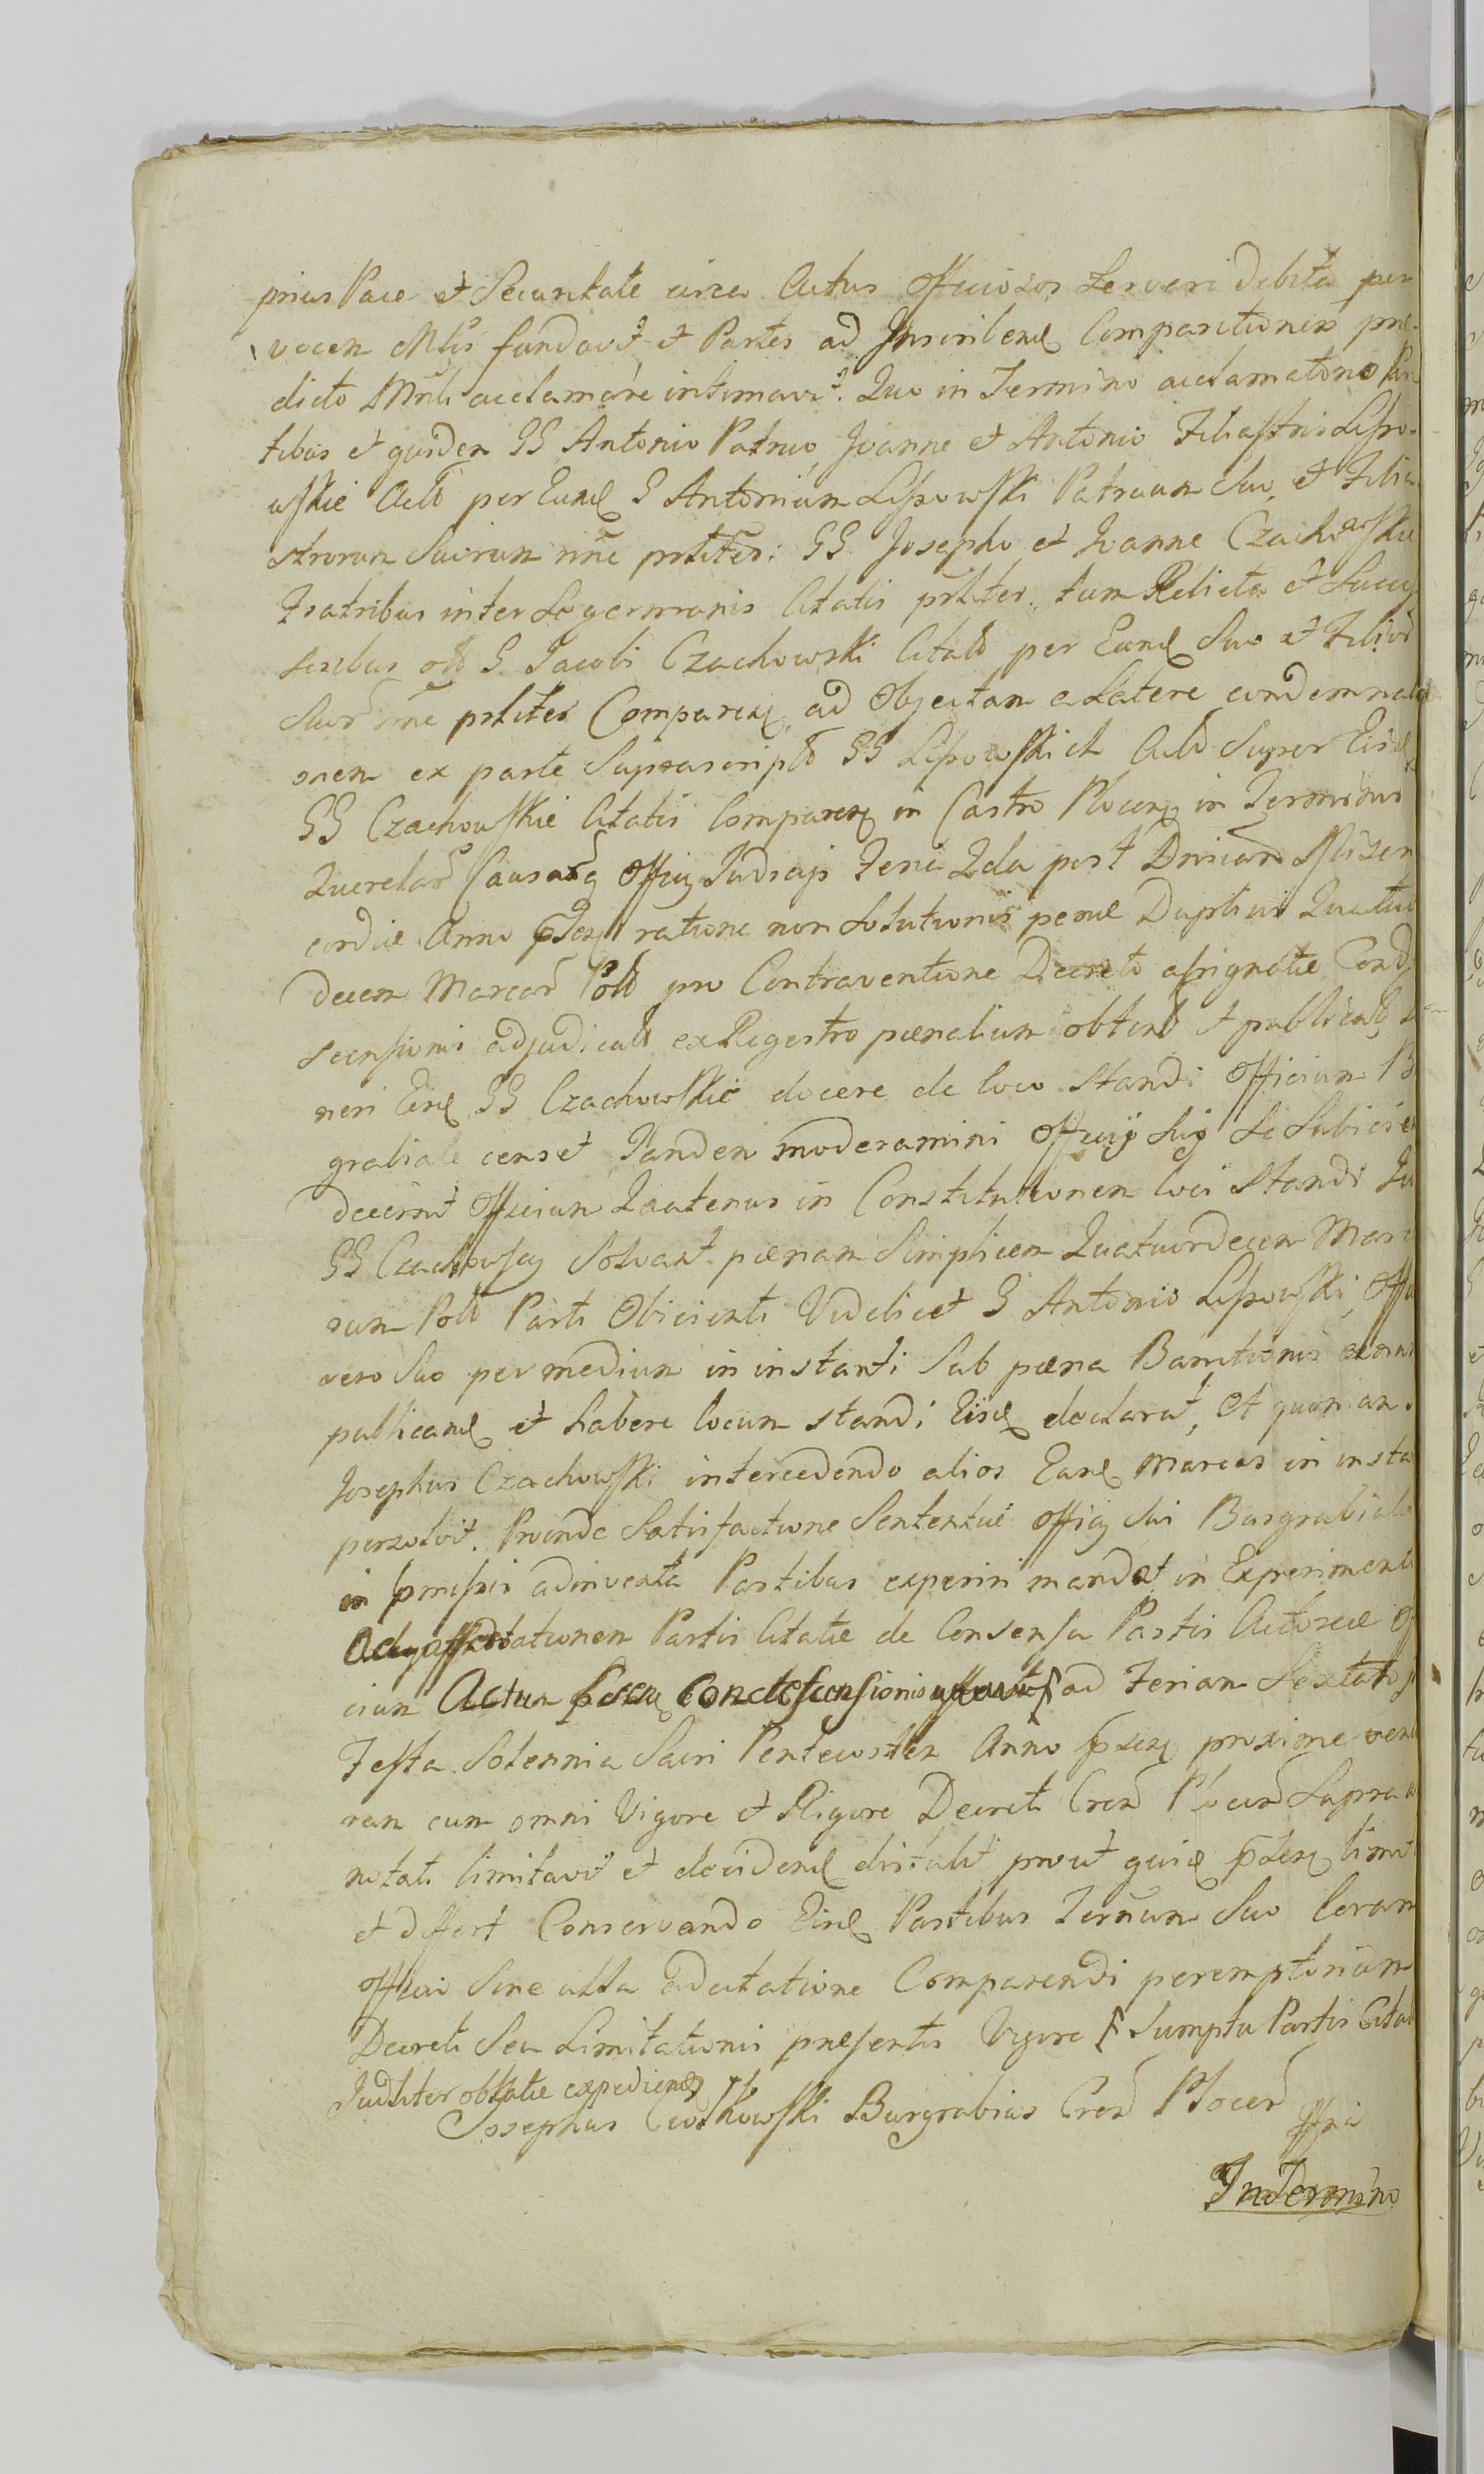 prius Pace et Securitate circa Actus Officiosos Servari debita per
vocem Mlis fundavit et Partes ad Inscribend Comparitionem præ-
dicto Mnli acclamare intimavit. Quo in Termino acclamatione Par-
tibus et quidem GG Antonio Patruo, Joanne et Antonio Filiastris Lipo-
wskie Actō per Eund G Antonium Lipowski Patruum Suo, et Filia-
strorum Suorum nne prlites: GG Josepho et Joanne Czachowskie
Fratribus inter Se germanis Citatis prliter, tum Relicta et Succes
soribus olō G Jacobi Czachowski Citatō per Eand Suo et Filior
Suor nne prliter Comparen, ad Objectam a Latere condemnatio
nem ex parte Suprascriptō GG Lipowskich Actō Super Eisd
GG Czachowskie Citatis Comparen in Castro Plocen in Terminis
Querelar Causarq Officij Judicij Feria 2da post Dnicam Miseri
cordiæ Anno pden ratione non Solutionis penæ Duplicis Quatuor
decem Marcar Polō pro Contraventione Decreto assignatæ Cond
scensionis adjudicatō ex Regestro pœnalium obtentō et publicatō,
neri Eisd GG Czachowskie docere de loco Standi Officium B
grabiale censet Tandem moderamini Officij Sui Se Subicien
decernit Officium Quatenus in Constitutionem loci Standi
GG Czachowscy Solvant pœnam Simplicem Quatuordecem Marca
rum Polō Parti Obicienti Videlicet G Antonio Lipowski, Offi
vero Suo per medium in instanti Sub pœna Banitionis
publicand et habere locum standi Eisd declarat, Et quoniam
Josephus Czachowski intercedendo alios Eand Marcas in insta
persolvit. Proinde Satisfactione Sententiæ Officij Sui Burgrabiale
in præmissis adinventa Partibus experiri mandat in Experimento
Ad affectationem Partis Citatæ de Consensu Partis Actoreæ
cium Actum pden Condescensionis ad Feriam Sextam p
Festa Solennia Sacri Pentecosten Anno pden proxime ven
ram cum omni Vigore et Rigore Decreti Cren Plocen Supra
notati limitavit et decidend distulit prout quidē pden limit
et differt Conservando Eisd Partibus Terminum Suo Coram
Officio Sine ulla adcitatione Comparendi peremptorium
Decreti Seu Limitationis præsentis Vigore Sumptu Partis Citat
Judliter oblatæ expediend
Josephus Burgrabius Cren Plocen
In Termino